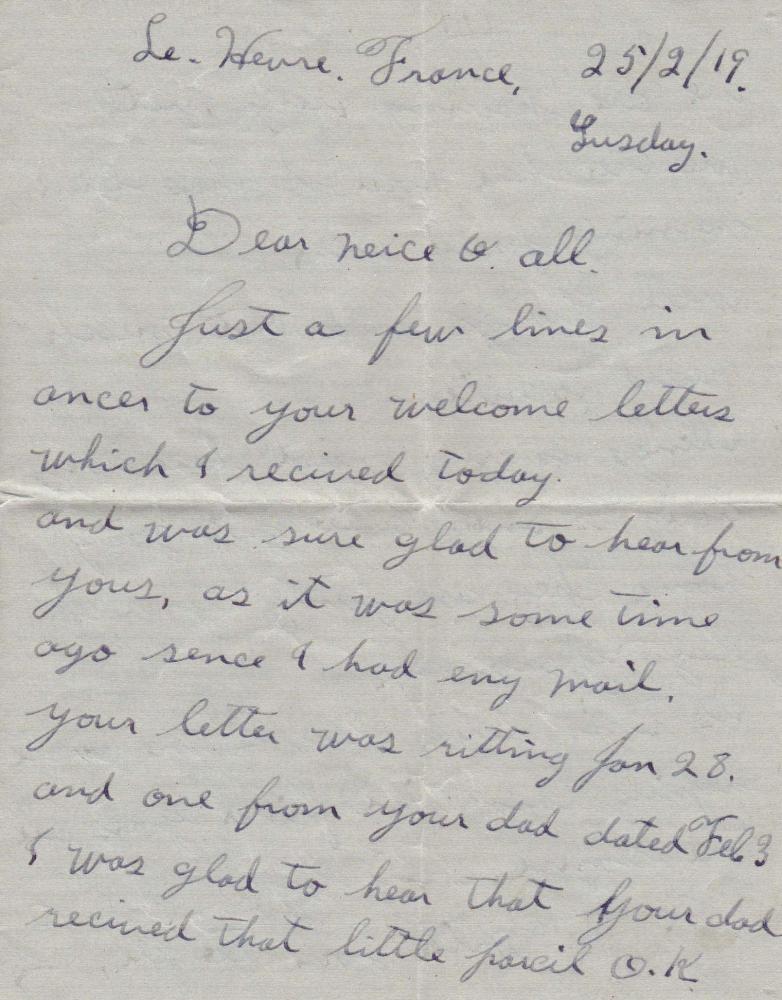 Le. Hevre. France, 25/2/19.
Tusday.
Dear neice & all.
Just a few lines in
ancer to your welcome letters
which I recived today.
and was sure glad to hear from
yous, as it was some time
ago sence I had eny mail.
your letter was ritting Jan 28.
and one from your dad dated Feb 3
I was glad to hear that your dad
recived that little parcil O.K